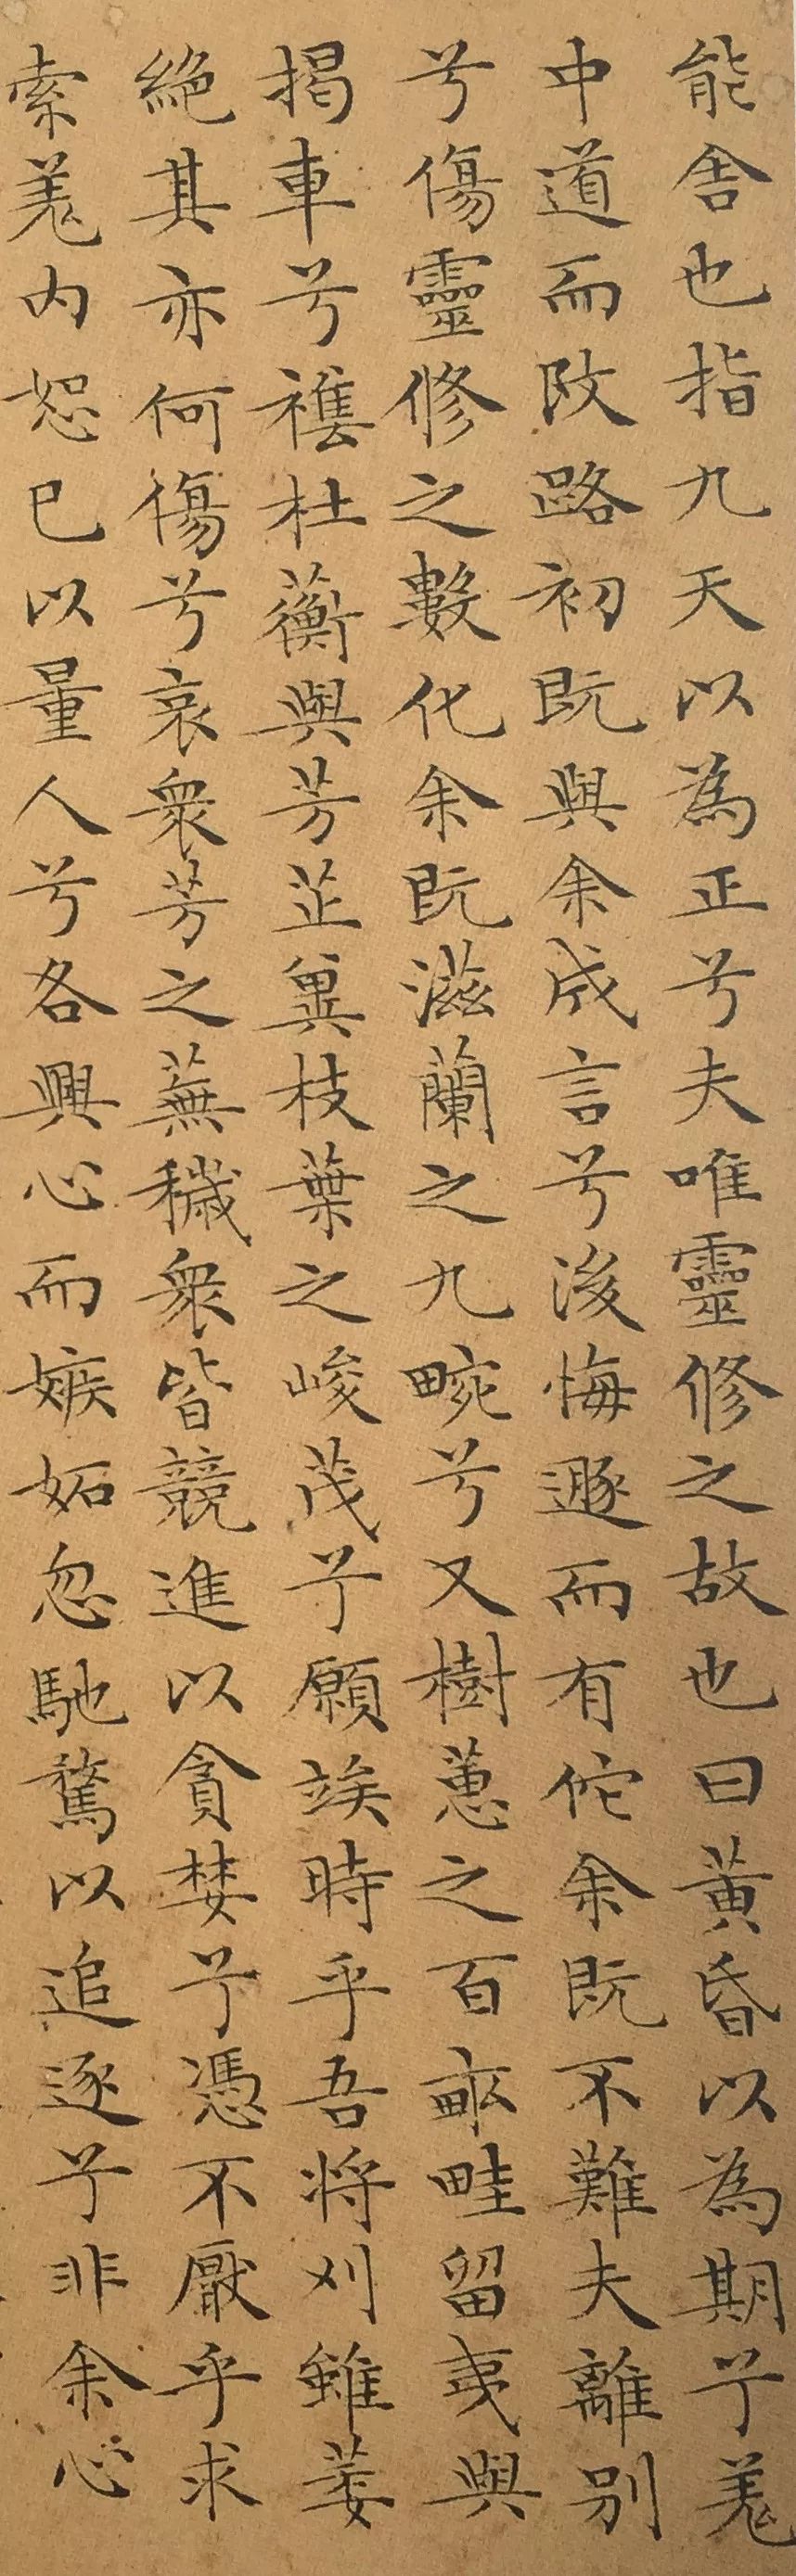 能舍也指九天以為正兮夫唯靈修之故也曰黃昏以為期兮羌
中道而改路初既與余成言兮後悔遯而有佗余既不難夫離別
兮傷靈修之數化余既滋蘭之九畹兮又樹蕙之百畝畦留夷與
揭車兮襍杜蘅與芳芷兾枝葉之峻茂兮願竢時乎吾將刈雖萎
絕其亦何傷兮哀衆芳之蕪穢衆皆競進以貪婪兮憑不厭乎求
索羌內恕己以量人兮各興心而嫉妬忽馳騖以追逐兮非余心